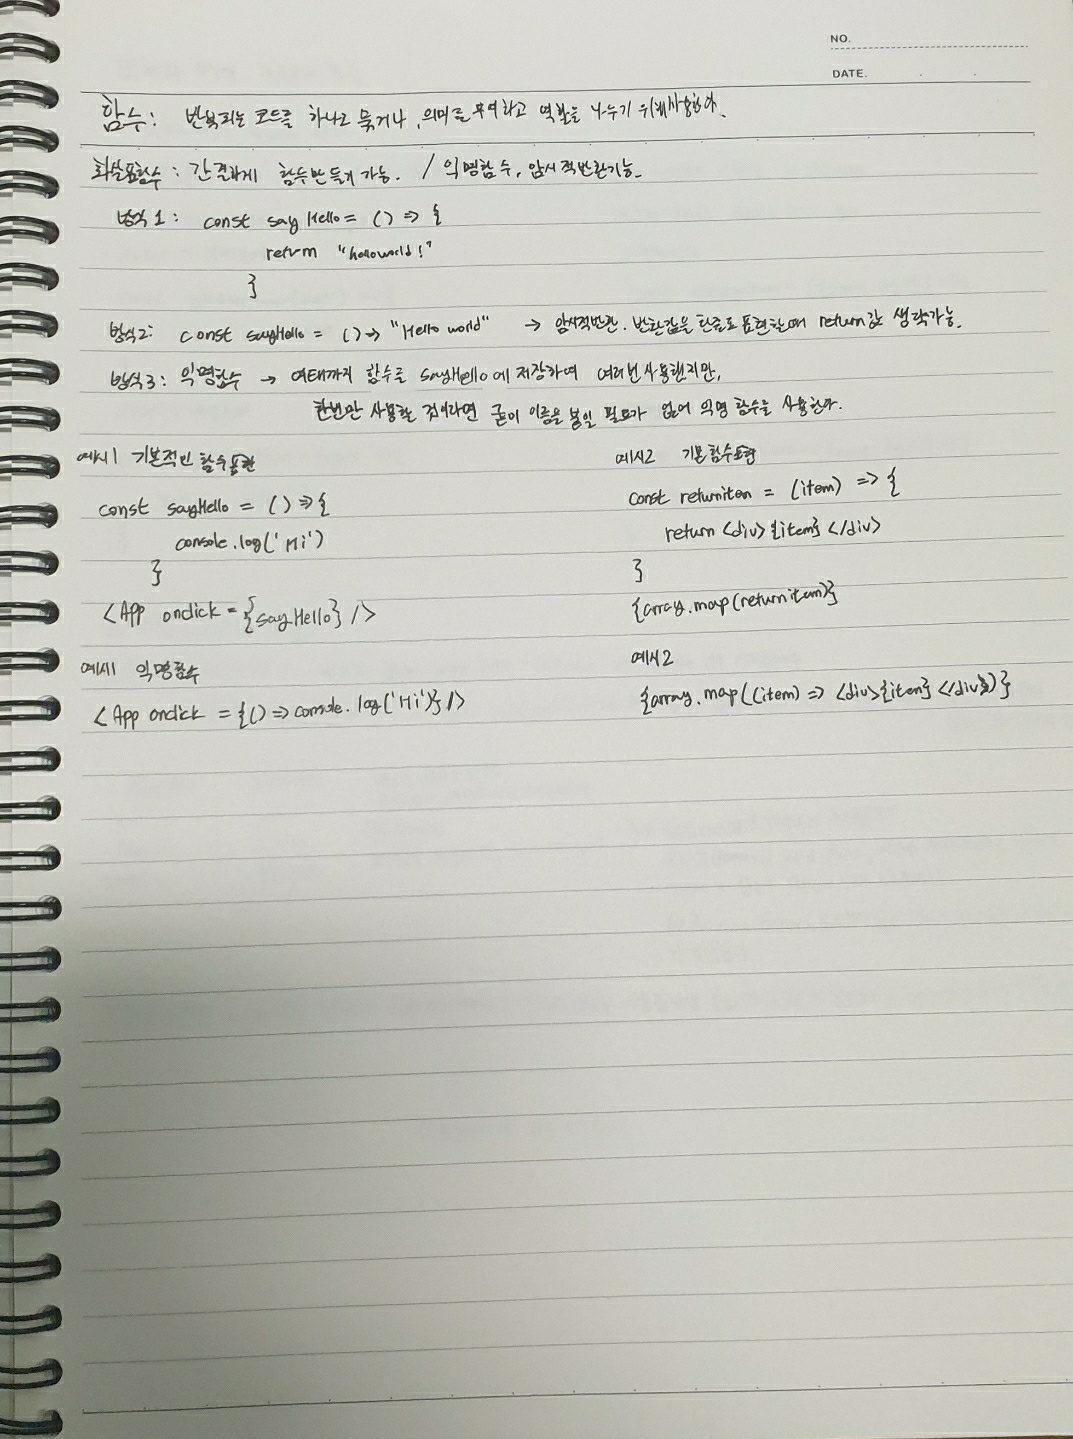 NO.
DATE.
함수: 반복되는 코드를 하나로 묶거나, 의미를 부여하고 역할을 나누기 위해 사용한다.
화살표함수 : 간결하게 함수만들기 가능. / 익명함수, 암시적반환기능.
방식 1: const say Hello = () => {
return "helloworld!"
}
방식2: const sayHello = () => "Hello world" → 암시적반환. 반환값을 한줄로 표현할때 return값 생략가능.
방식3: 익명함수 → 여태까지 함수를 sayHello에 저장하여 여러번 사용했지만,
한번만 사용할 것이라면 굳이 이름을 붙일 필요가 없어 익명 함수를 사용한다.
예시1 기본적인 함수표현
const sayHello = () => {
console.log('Hi')
}
<App onclick = {sayHello} />
예시2 기본함수표현
const returnitem = (item) => {
return <div>{item}</div>
}
{array.map(returnitem)}
예시1 익명함수
<App onclick = {() => console.log('Hi')} />
예시2
{array.map((item) => <div>{item}</div>)}